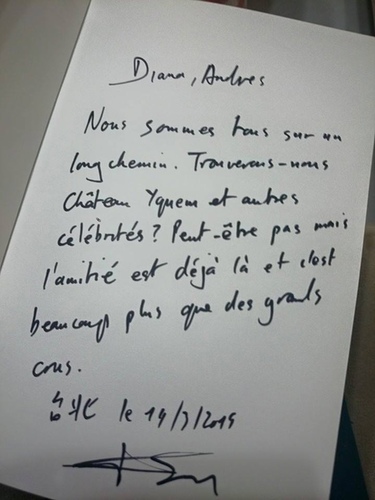 Diana, Andres
Nous sommes tous sur un
long chemin. Trouverons-nous
Château Yquem et autres
célébrités? Peut-être pas mais
l'amitié est déjà là et c'est
beaucoup plus que des grands
crus.
le 14/3/2015